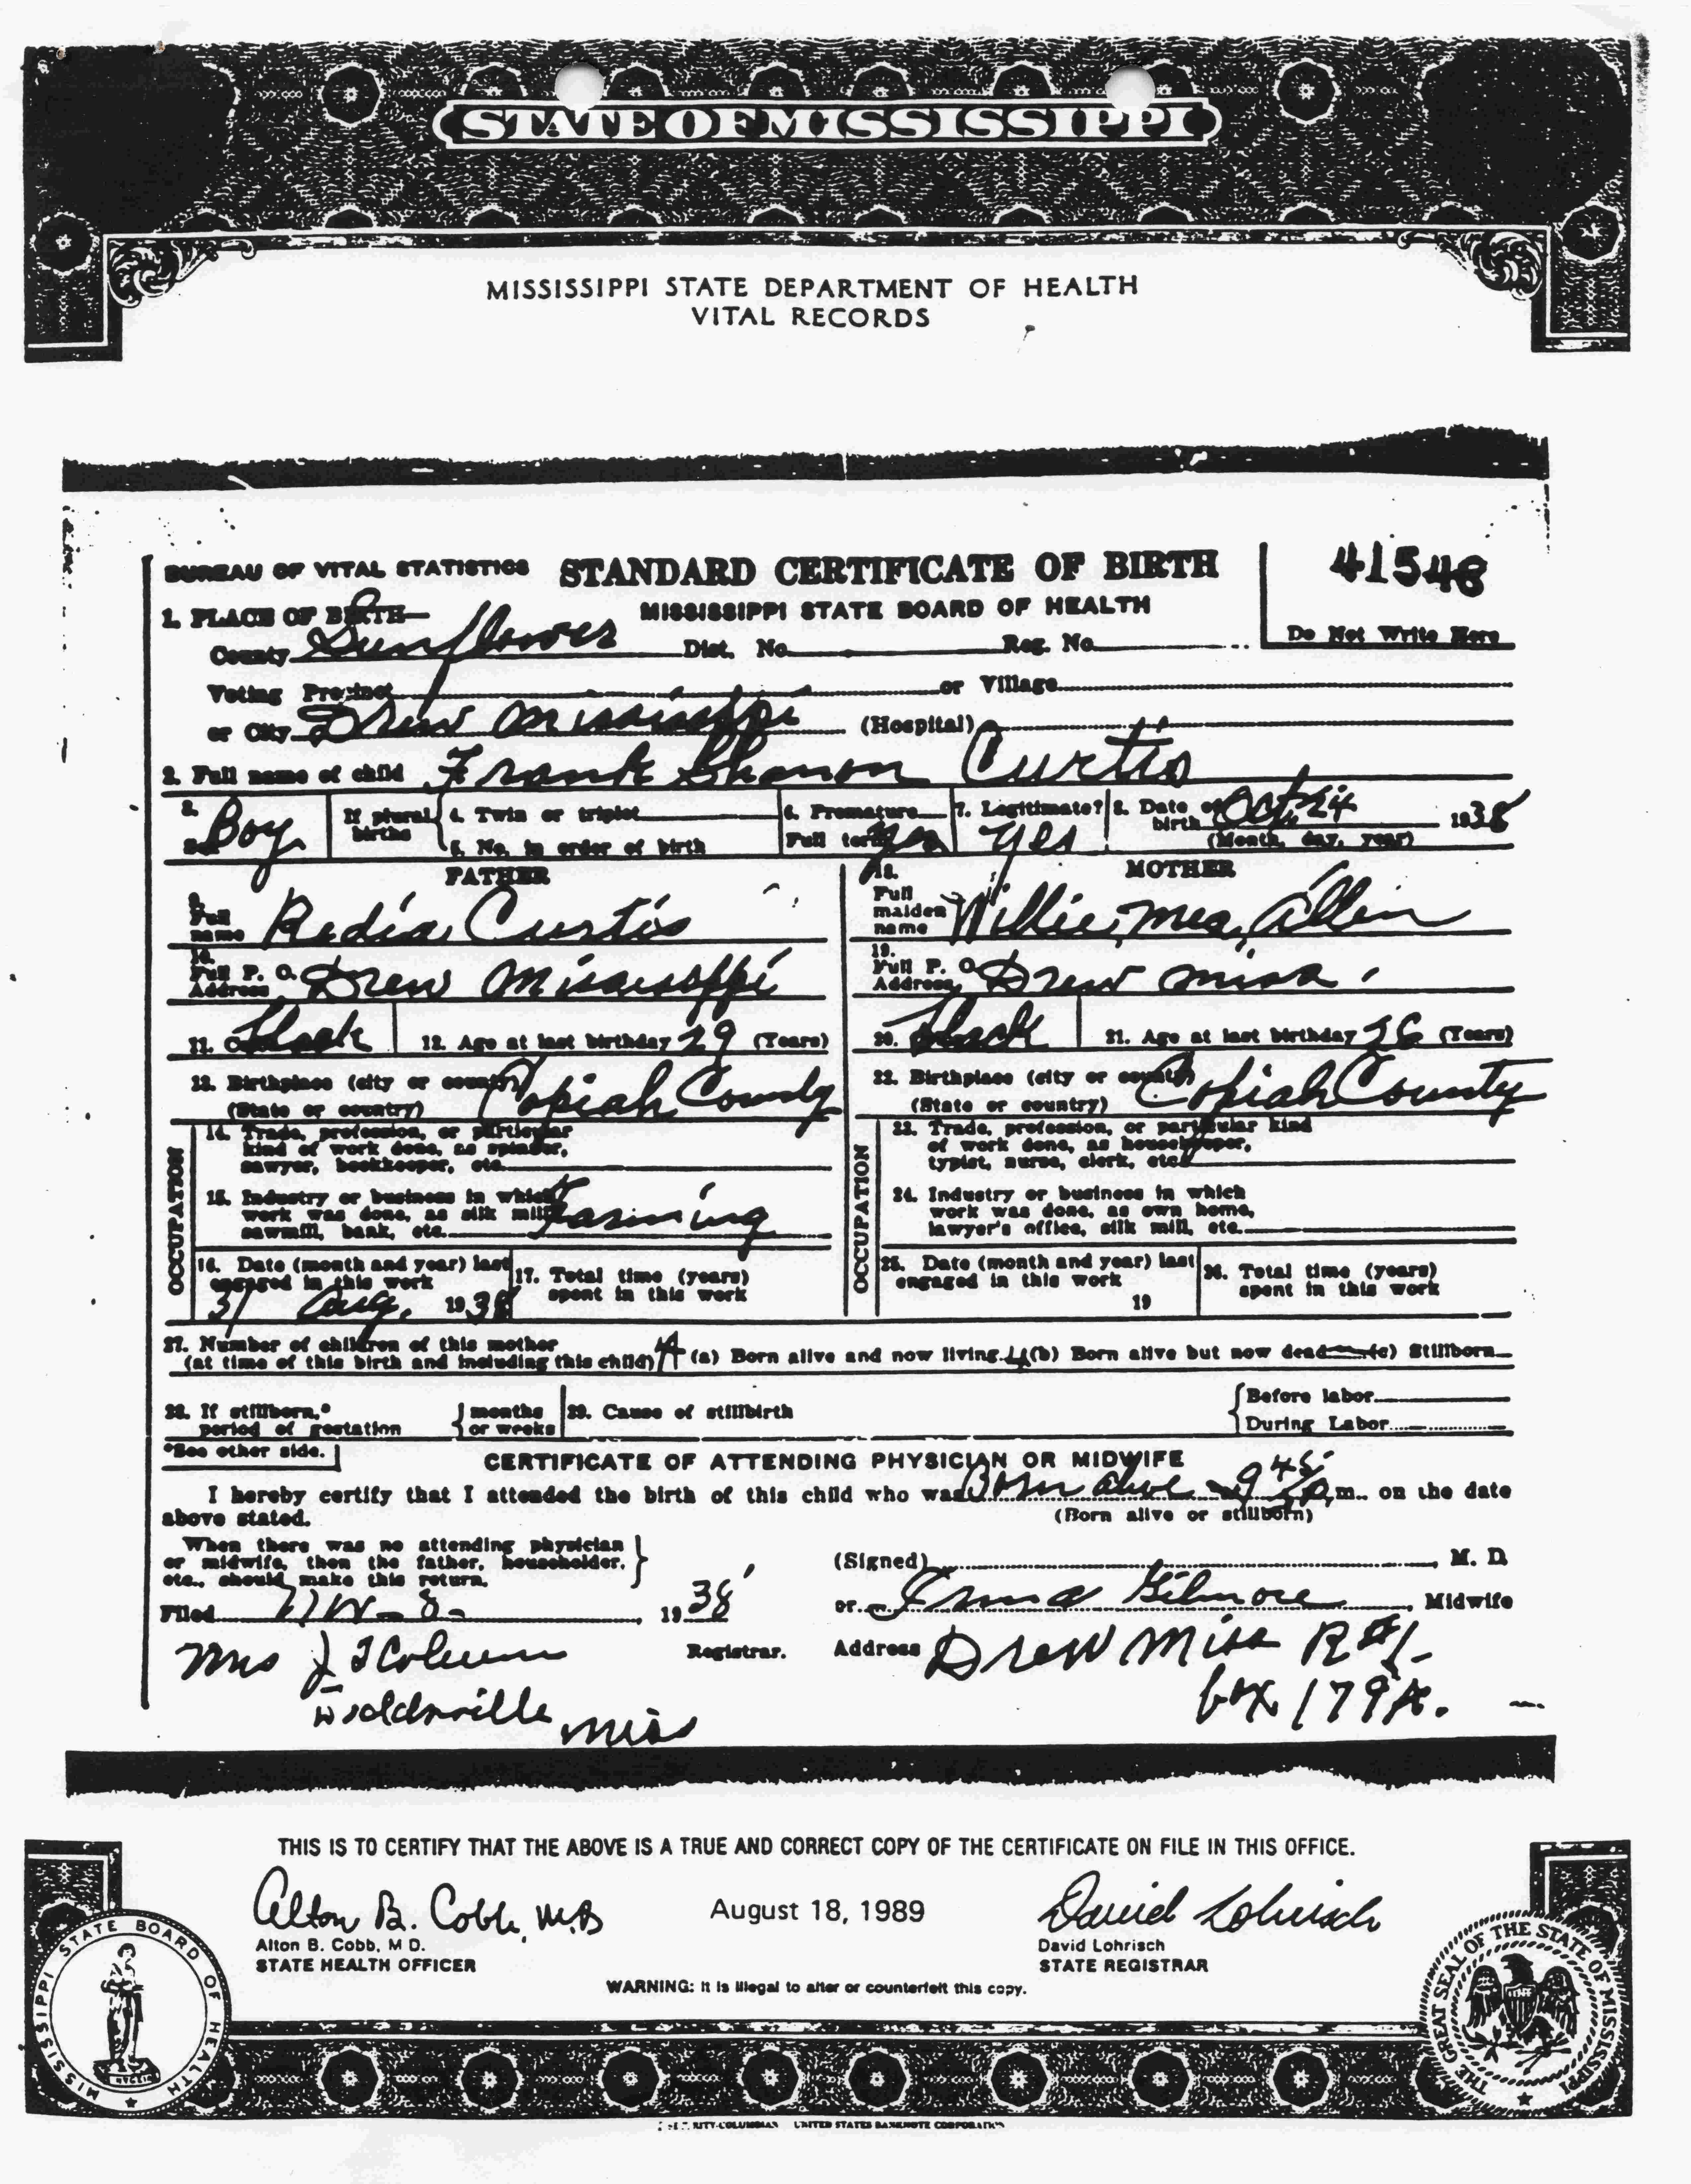 STATE OF MISSISSIPPI
MISSISSIPPI STATE DEPARTMENT OF HEALTH
VITAL RECORDS
BUREAU OF VITAL STATISTICS STANDARD CERTIFICATE OF BIRTH 41548
1. PLACE OF BIRTH MISSISSIPPI STATE BOARD OF HEALTH
County Sunflower Dist. No. Reg. No. Do Not Write Here
Voting Precinct or Village
or City Drew Mississippi (Hospital)
2. Full name of child Frank Shanon Curtis
3. Sex Boy If plural births 4. Twin or triplet 5. No. in order of birth 6. Premature Full term yes 7. Legitimate? yes 8. Date of birth Oct, 24 1938 (Month, day, year)
FATHER MOTHER
9. Full name Redia Curtis 18. Full maiden name Willie Mea Allen
10. Full P. O. Address Drew Mississippi 19. Full P. O. Address Drew Miss.
11. Black 12. Age at last birthday 29 (Years) 20. Black 21. Age at last birthday 26 (Years)
13. Birthplace (city or county) (State or country) Copiah County 22. Birthplace (city or county) (State or country) Copiah County
OCCUPATION 14. Trade, profession, or particular kind of work done, as spinner, sawyer, bookkeeper, etc. OCCUPATION 23. Trade, profession, or particular kind of work done, as housekeeper, typist, nurse, clerk, etc.
15. Industry or business in which work was done, as silk mill, sawmill, bank, etc. Farming 24. Industry or business in which work was done, as own home, lawyer's office, silk mill, etc.
16. Date (month and year) last engaged in this work 31 Aug, 1938 17. Total time (years) spent in this work 25. Date (month and year) last engaged in this work 19 26. Total time (years) spent in this work
27. Number of children of this mother
(at time of this birth and including this child) 4 (a) Born alive and now living 4 (b) Born alive but now dead (c) Stillborn
28. If stillborn,* period of gestation months or weeks 29. Cause of stillbirth Before labor During Labor
*See other side.
CERTIFICATE OF ATTENDING PHYSICIAN OR MIDWIFE
I hereby certify that I attended the birth of this child who was Born alive 9 45 p.m. on the date
above stated. (Born alive or stillborn)
When there was no attending physician
or midwife, then the father, householder,
etc., should make this return.
(Signed) M. D.
Filed 8- 1938 or Irma Gilmore Midwife
Mrs J Registrar. Address Drew Miss R#1-
Miss box 179A.
THIS IS TO CERTIFY THAT THE ABOVE IS A TRUE AND CORRECT COPY OF THE CERTIFICATE ON FILE IN THIS OFFICE.
Alton B. Cobb, M.D. August 18, 1989 David Lohrisch
Alton B. Cobb, M D. David Lohrisch
STATE HEALTH OFFICER STATE REGISTRAR
WARNING: It is illegal to alter or counterfeit this copy.
MISSISSIPPI STATE BOARD OF HEALTH
HYGEIA
THE GREAT SEAL OF THE STATE OF MISSISSIPPI
UNITED STATES BANKNOTE CORPORATION